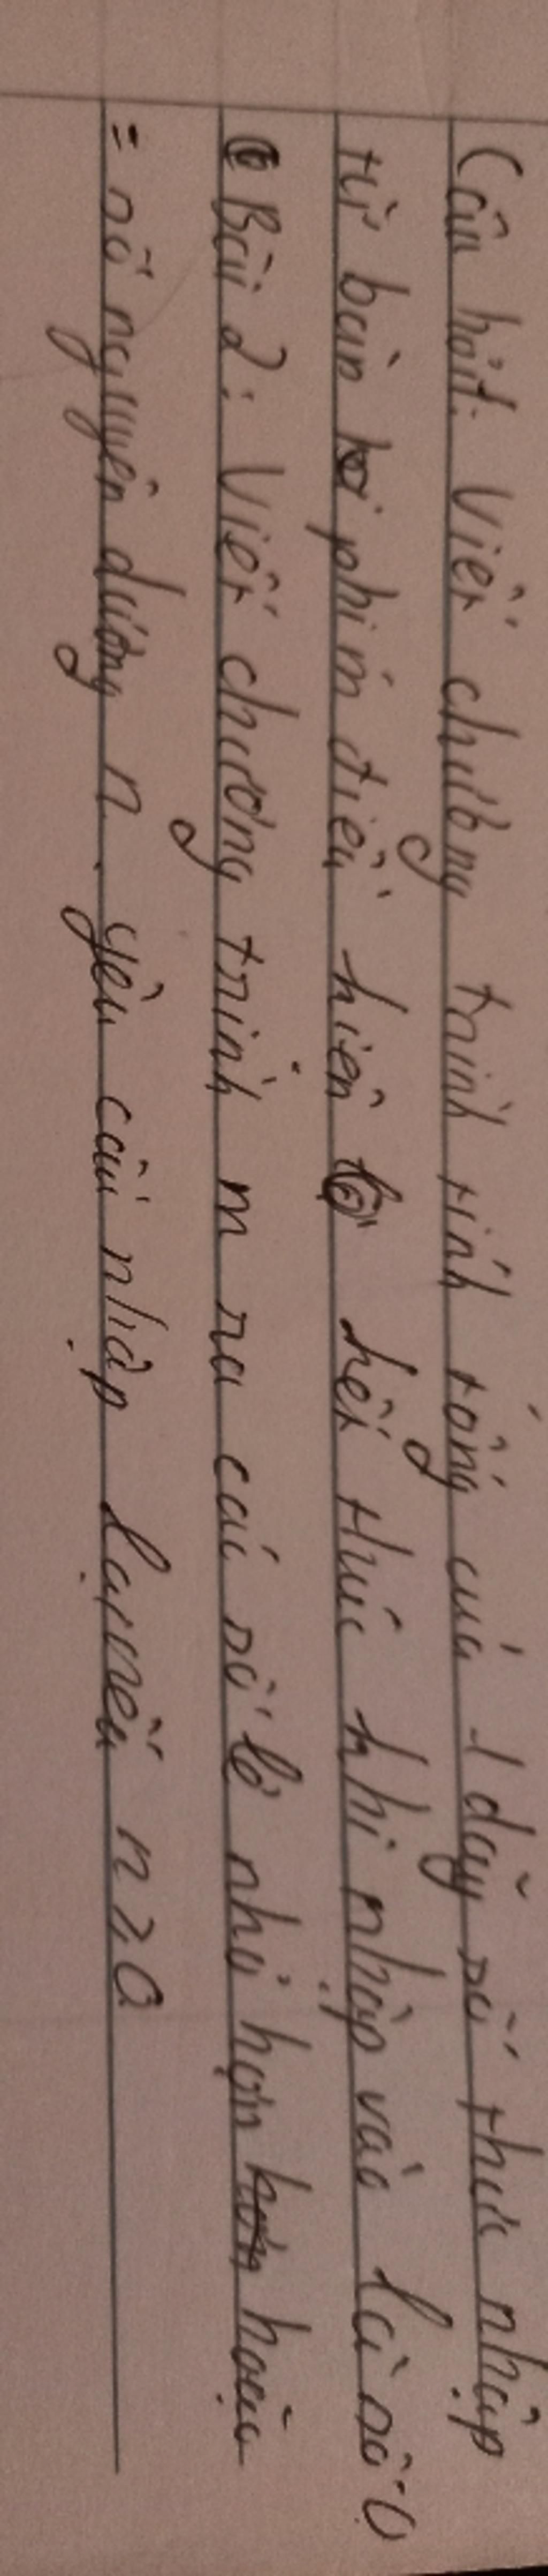 Câu hỏi1: Viết chương trình tính tổng của 1 dãy số thực nhập
từ bàn phím điều kiện kết thúc khi nhập vào là số 0
Bài 2: Viết chương trình in ra các số lẻ nhỏ hơn hoặc
= số nguyên dương n. yêu cầu nhập lại nếu n ≥ 0